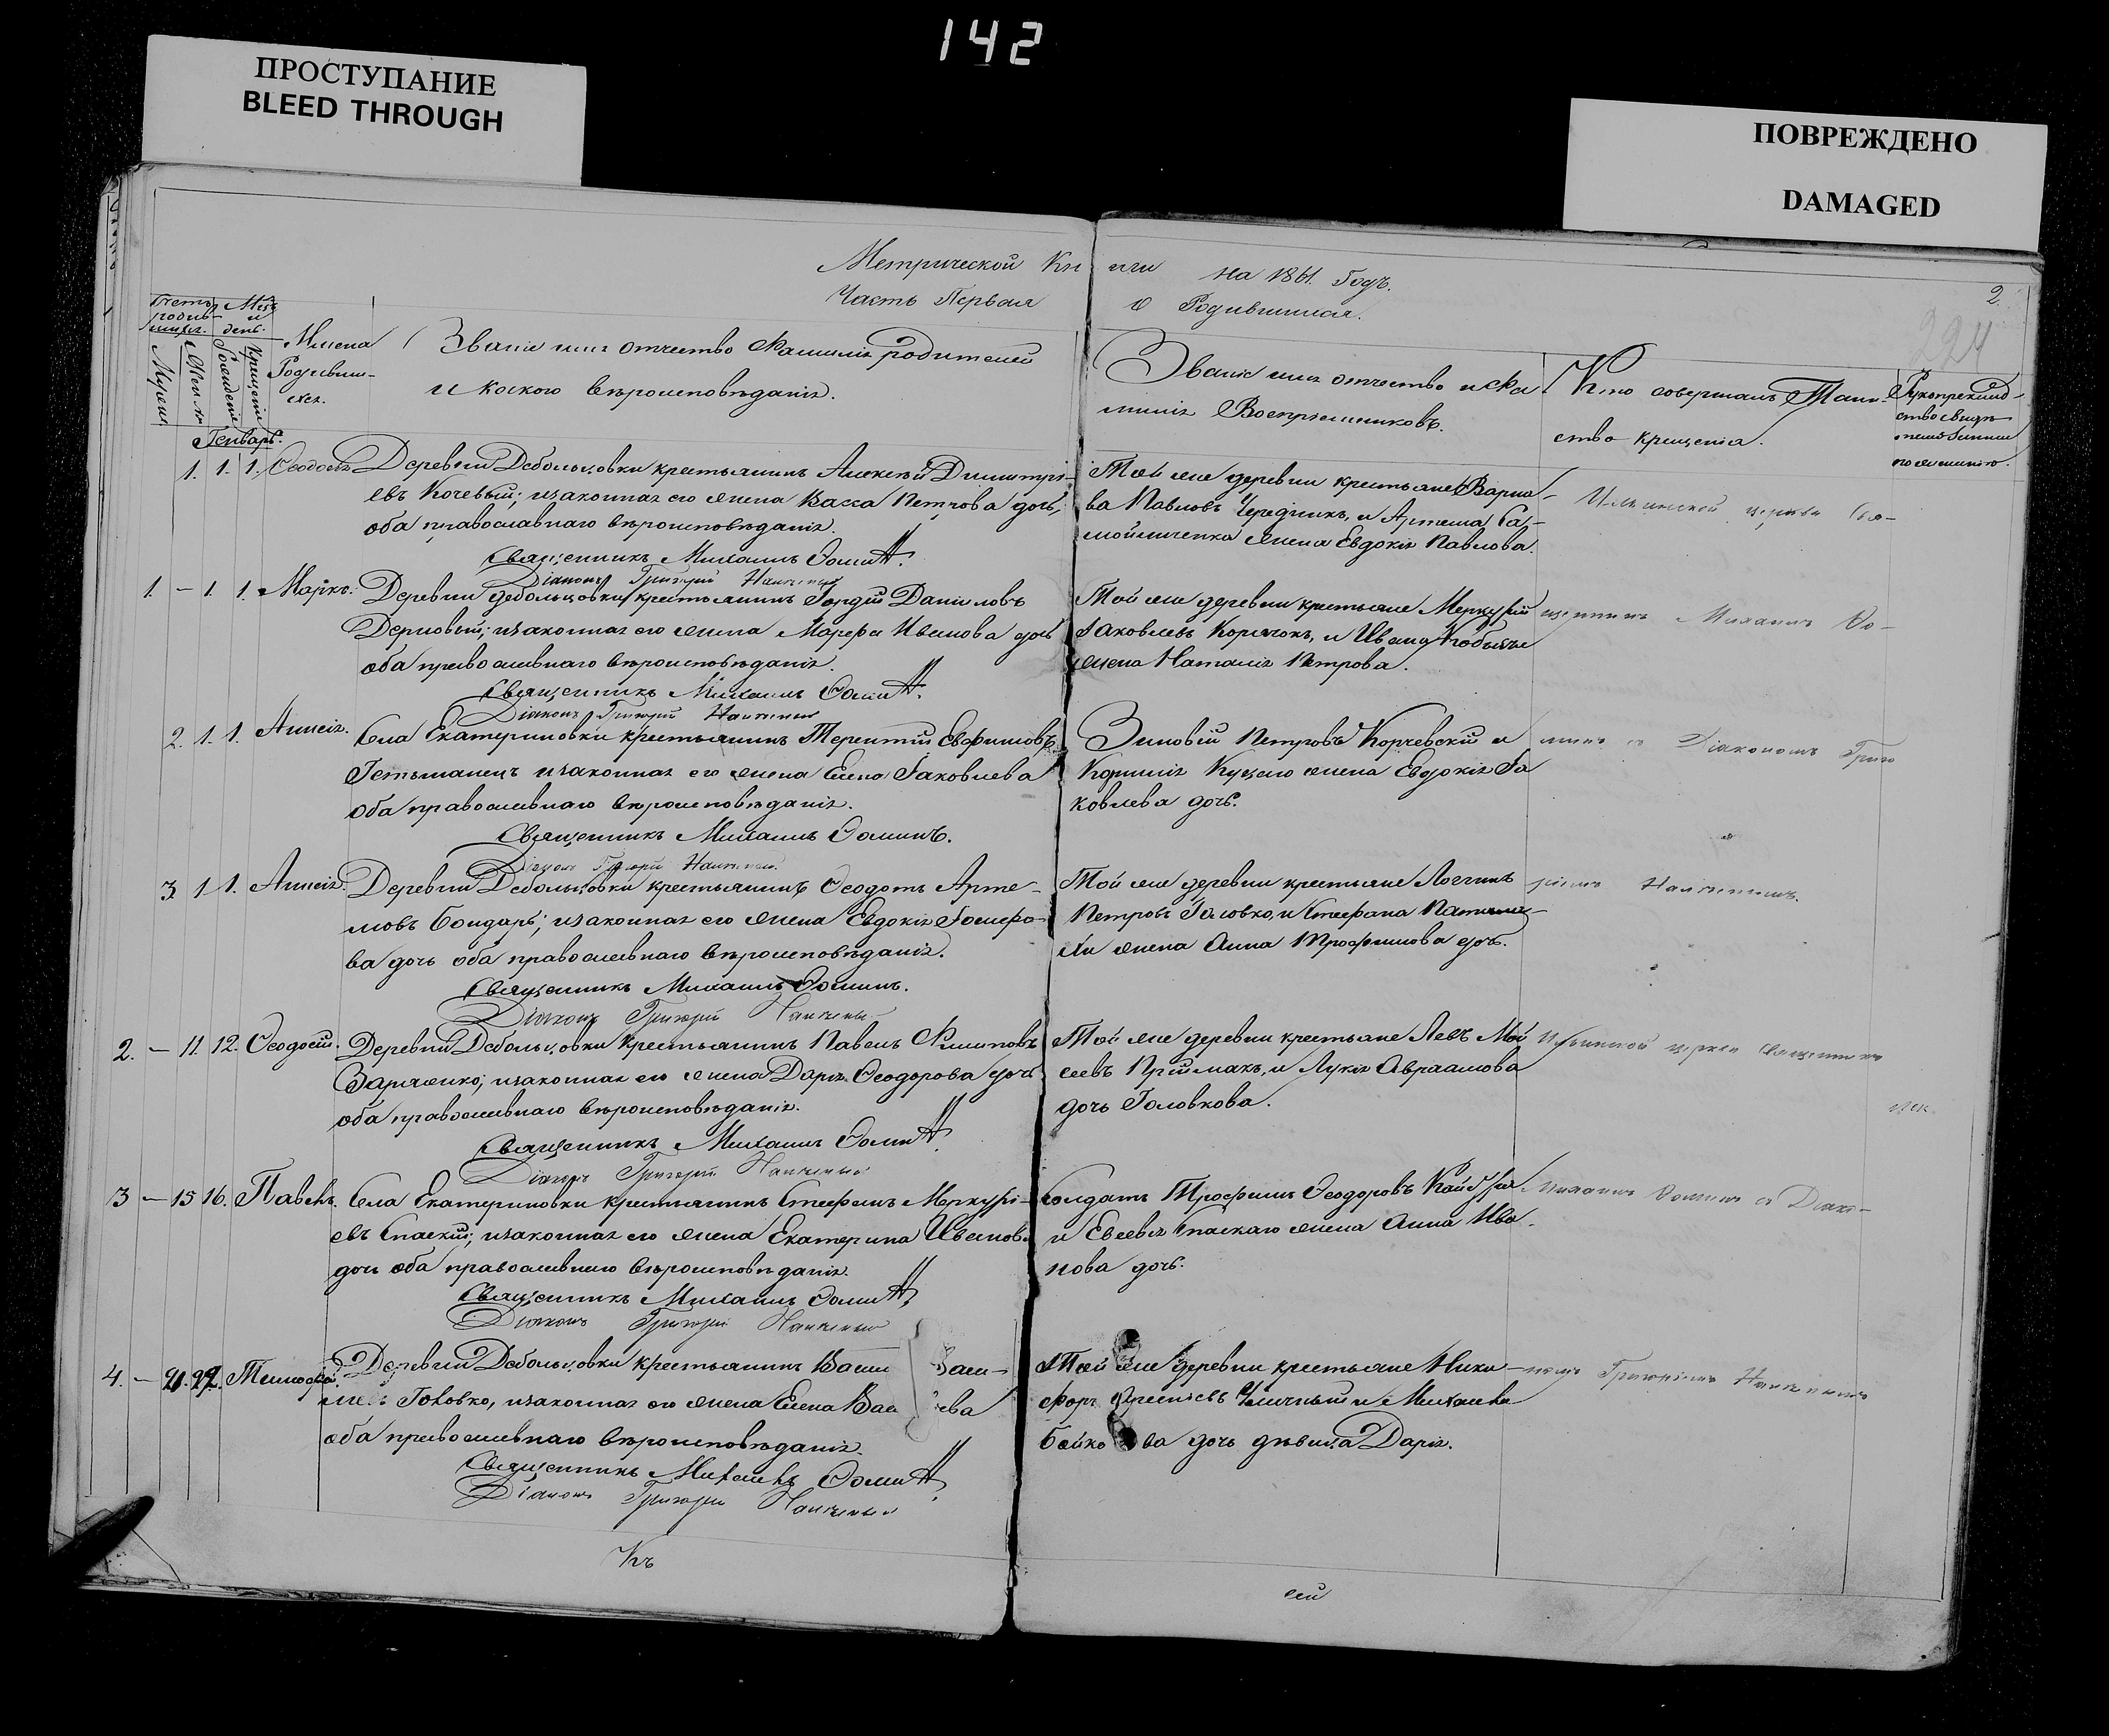 142
ПРОСТУПАНИЕ
BLEED THROUGH
ПОВРЕЖДЕНО
DAMAGED
Метрической Кн иги на 1861. Годъ.
2.
Часть Первая О Родившихся.
224
Счетъ родив-шихся.
Мѣс. и день.
Мужеск.
Женск.
Рожденія
Крещенія
Имена Родивших-ся.
Званіе имя отчество Фамилія родителей
и какого вѣроисповѣданія.
Званіе имя отчество и Фа-
милія Воспріемниковъ.
Кто совершалъ Таин-
ство крещенія.
Рукоприклад-
ство свидѣ-
телей записи
по желанію.
Генварь.
1. 1. 1. Деревни Дебольцовки крестьянинъ Алексѣй Димитрі-
евъ Кочевый; изаконная его жена Васса Петрова дочь,
оба православнаго вѣроисповѣданія.
Священникъ Михаилъ Ѳоминъ.
Діаконъ Григорій
Той же деревни крестьяне Варна-
ва Павловъ Чередникъ, и Артема Са-
мойличенка жена Евдокія Павлова.
Ильинской церкви Свя-
1. — 1. 1. Маркъ. Деревни Дебольцовки крестьянинъ Гордій Даниловъ
Дерновый; изаконная его жена Марѳа Иванова дочь
оба православнаго вѣроисповѣданія.
Священникъ Михаилъ Ѳоминъ.
Діаконъ Григорій
Той же деревни крестьяне Меркурій
Іаковлевъ Корячокъ, и Ивана Кобылы
жена Наталія Петрова.
щенникъ Михаилъ Ѳо-
2. 1. 1. Анисія. Села Екатериновки крестьянинъ Терентій Евфимовъ
Гетьманецъ изаконная его жена Елена Іаковлева
оба православнаго вѣроисповѣданія.
Священникъ Михаилъ Ѳоминъ.
Діаконъ Григорій
Зиновій Петровъ Корчевскій и
Корнилія Куцаго жена Евдокія Іа
ковлева дочь.
минъ съ Діакономъ Григо
3. 1. 1. Анисія. Деревни Дебольцовки крестьянинъ Ѳеодотъ Арте-
мовъ Бондарь; изаконная его жена Евдокія Іосифо-
ва дочь оба православнаго вѣроисповѣданія.
Священникъ Михаилъ Ѳоминъ.
Діаконъ Григорій
Той же деревни крестьяне Логгинъ
Петровъ Головко, и Стефана
хи жена Анна Трофимова дочь.
ріемъ
2. — 11. 12. Ѳеодосій. Деревни Дебольцовки крестьянинъ Павелъ Филиповъ
Заряженко; изаконная его жена Дарія Ѳеодорова дочь
оба православнаго вѣроисповѣданія.
Священникъ Михаилъ Ѳоминъ.
Діаконъ Григорій
Той же деревни крестьяне Левъ Мой
сеевъ Приймакъ, и Лукія Авраамова
дочь Головкова.
Ильинской церкви Священникъ
3 — 15 16. Павелъ. Села Екатериновки крестьянинъ Стефанъ Меркурі-
евъ Спаскій; изаконная его жена Екатерина Иванова
дочь оба православнаго вѣроисповѣданія.
Священникъ Михаилъ Ѳоминъ.
Діаконъ Григорій
Солдатъ Трофимъ Ѳеодоровъ
и Евсевія Спаскаго жена Анна Ива-
нова дочь.
Михаилъ Ѳоминъ съ Діако-
4. — 21. 22. Тимофей. Деревни Дебольцовки крестьянинъ Васи Васи-
левъ Головко, изаконная его жена Елена Вас ева
оба православнаго вѣроисповѣданія.
Священникъ Михаилъ Ѳоминъ
Діаконъ Григорій
Той же деревни крестьяне Ники-
форъ и Михаила
Бойко ва дочь дѣвица Дарія.
номъ Григоріемъ
Къ
сей